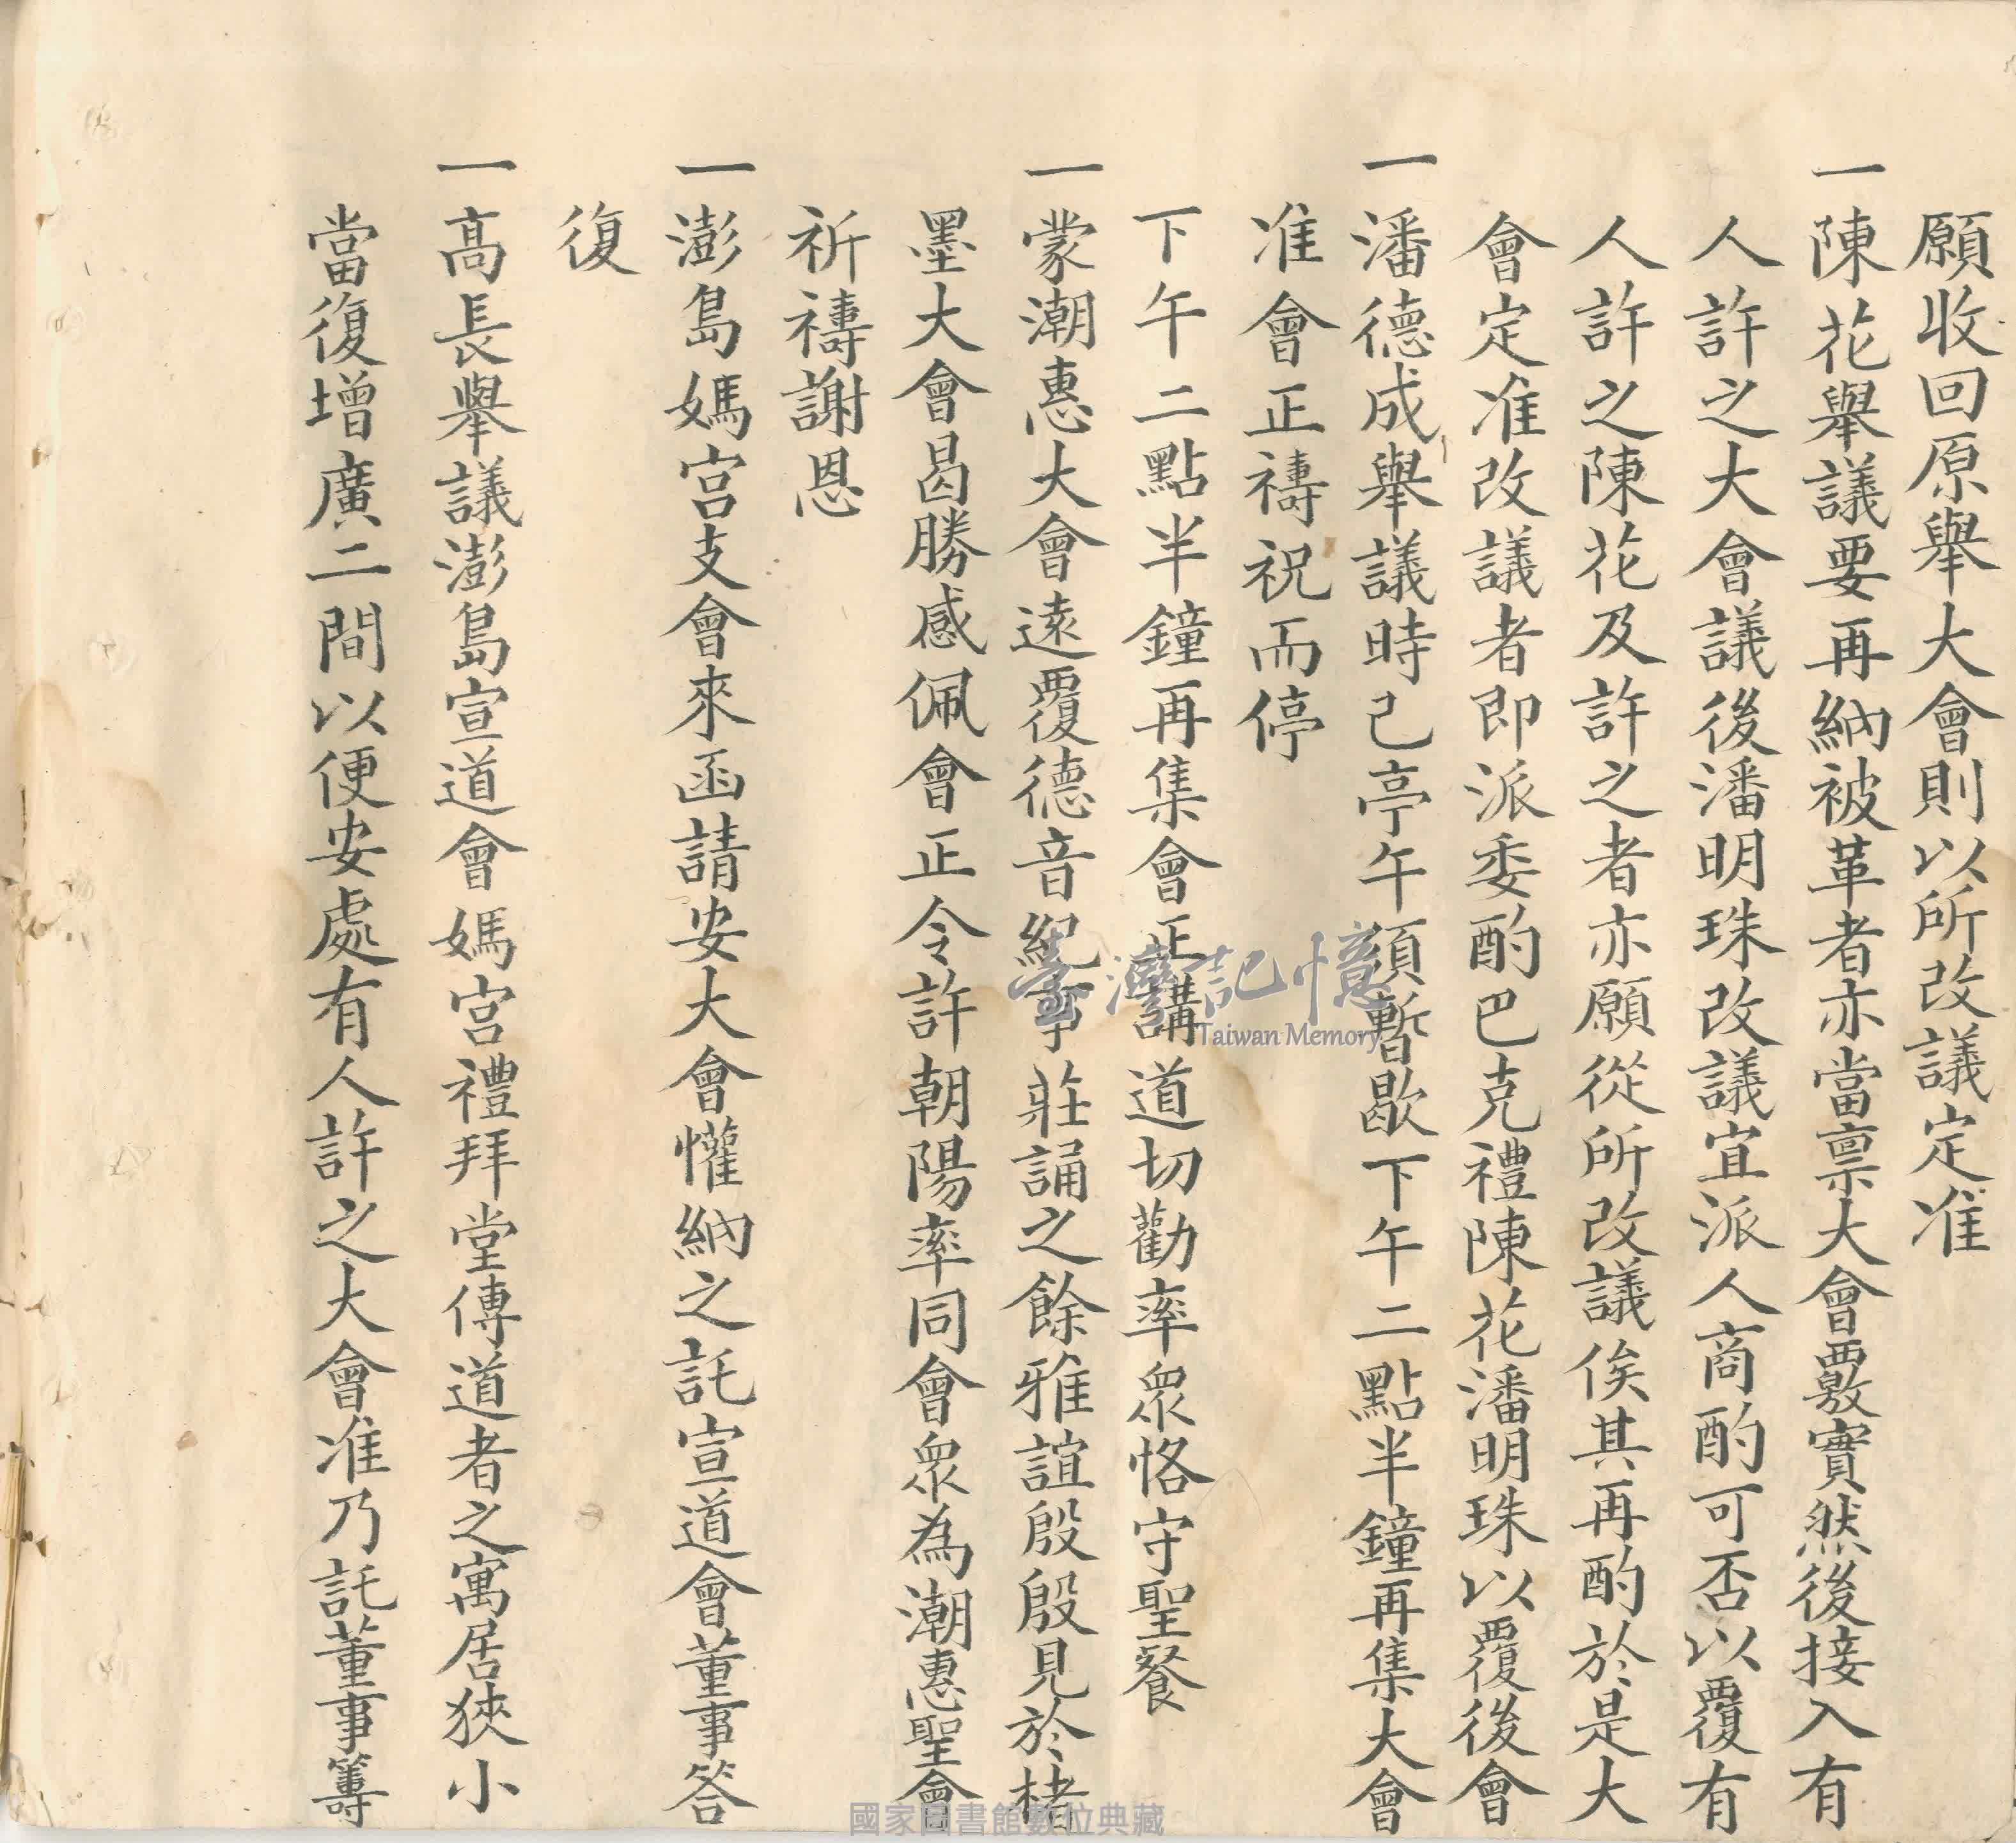 願收回原舉大會則以所改議定准
一陳花舉議要再納被革者亦當禀大會覈實然後接入有
人許之大會議後潘明珠改議宜派人商酌可否以覆有
人許之陳花及許之者亦願從所改議俟其再酌於是大
會定准改議者即派委酌巴克禮陳花潘明珠以覆後會
一潘德成舉議時已亭午須暫歇下午二點半鐘再集大會
准會正禱祝而停
下午二點半鐘再集會正講道切勸率眾恪守聖餐
一蒙潮惠大會遠覆德音紀事莊誦之餘雅誼殷殷見於楮
墨大會曷勝感佩會正令許朝陽率同會眾為潮惠聖會
祈禱謝恩
一澎島媽宮支會來函請安大會懽納之託宣道會董事答
復
一高長舉議澎島宣道會媽宮禮拜堂傳道者之寓居狹小
當復增廣二間以便安處有人許之大會准乃託董事籌
臺灣記憶
Taiwan Memory
國家圖書館數位典藏